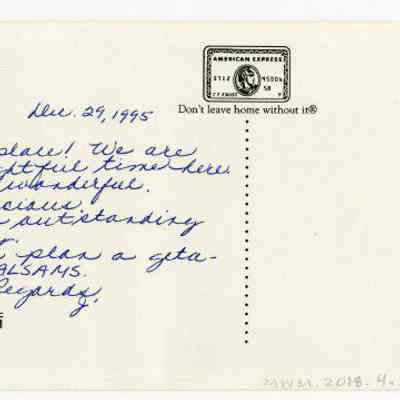 AMERICAN EXPRESS
Don't leave home without it®
Dec. 29, 1995
place! We are
ghtful time here.
wonderful.
cious.
outstanding
plan a geta-
ALSAMS.
Regards,
MWM. 2018.4.